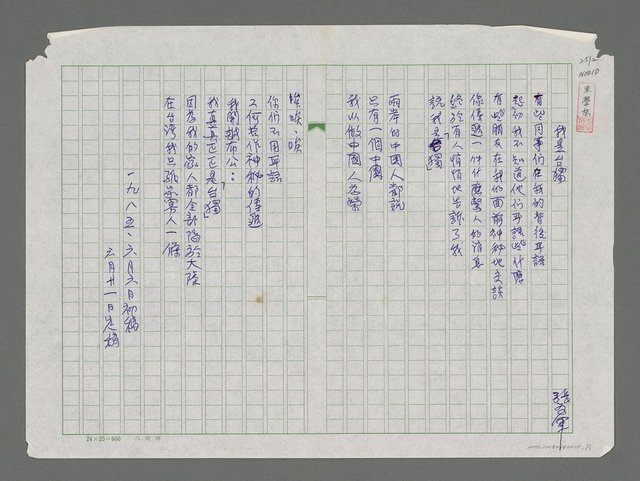 我是台獨
張力軍
有些同事們在我的背後耳語
起初我不知道他們耳語些什麼
有些朋友在我的面前神神地交談
像傳遞一件什麼驚人的消息
終於有人悄悄地告訴了我
說我是「台獨」
兩岸的中國人都說
只有一個中國
我以做中國人為榮
唉唉,唉
你們不用耳語
又何苦作神秘的傳遞
我開誠布公:
我真真正正是「台獨」
因為我的家人都全部陷於大陸
在台灣我只孤家寡人一條
一九八五、六月六日初稿
六月廿一日定稿
24×25=600